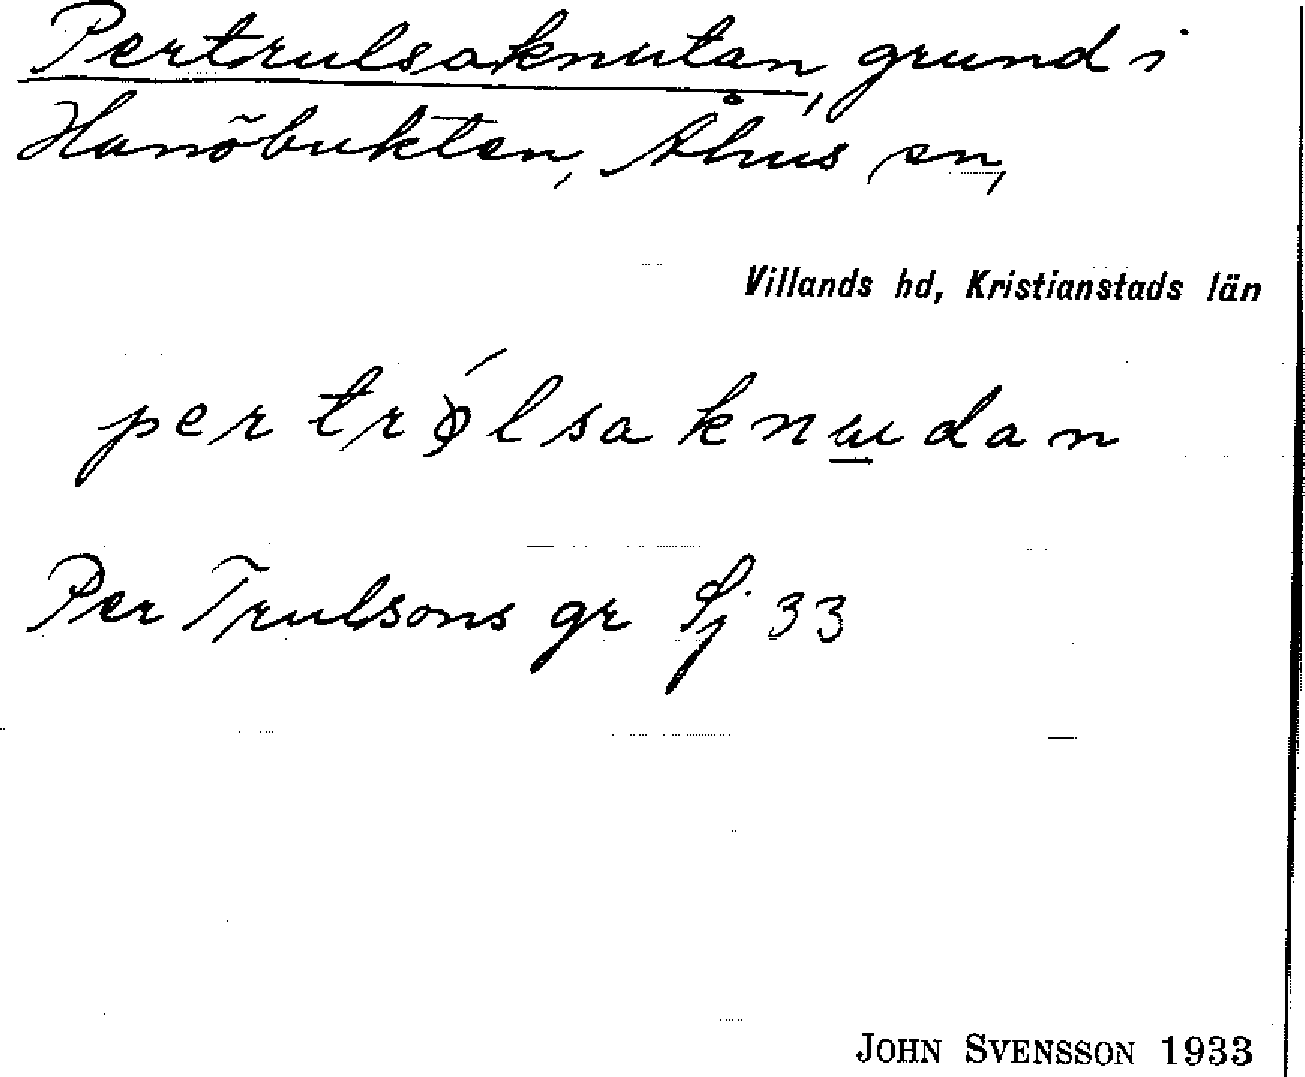 Pertrulsaknutan, grund i
Hanöbukten, Åhus sn,
Villands hd, Kristianstads län
per trǿlsa knu̲dan
Per Trulsons gr Sj 33
JOHN SVENSSON 1933